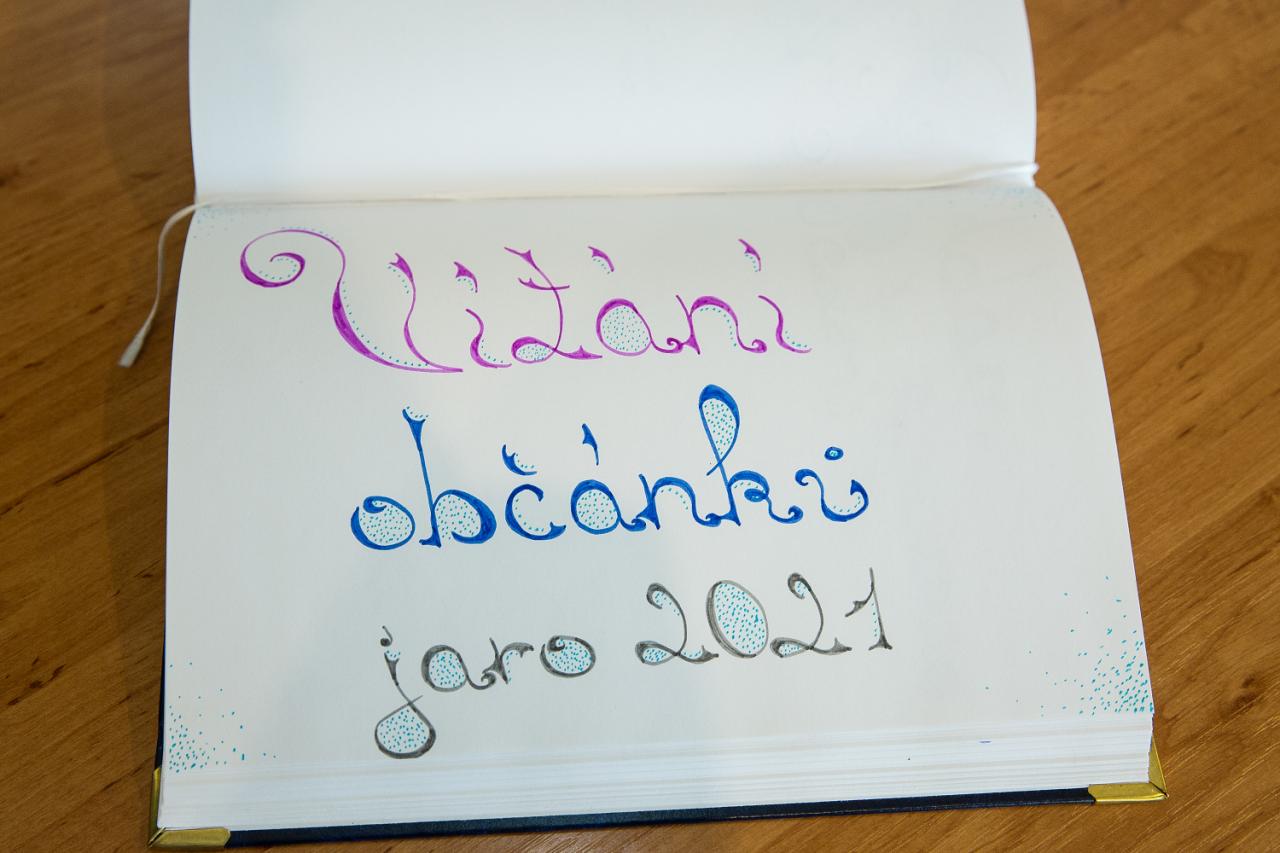 Vítání
občánků
jaro 2021